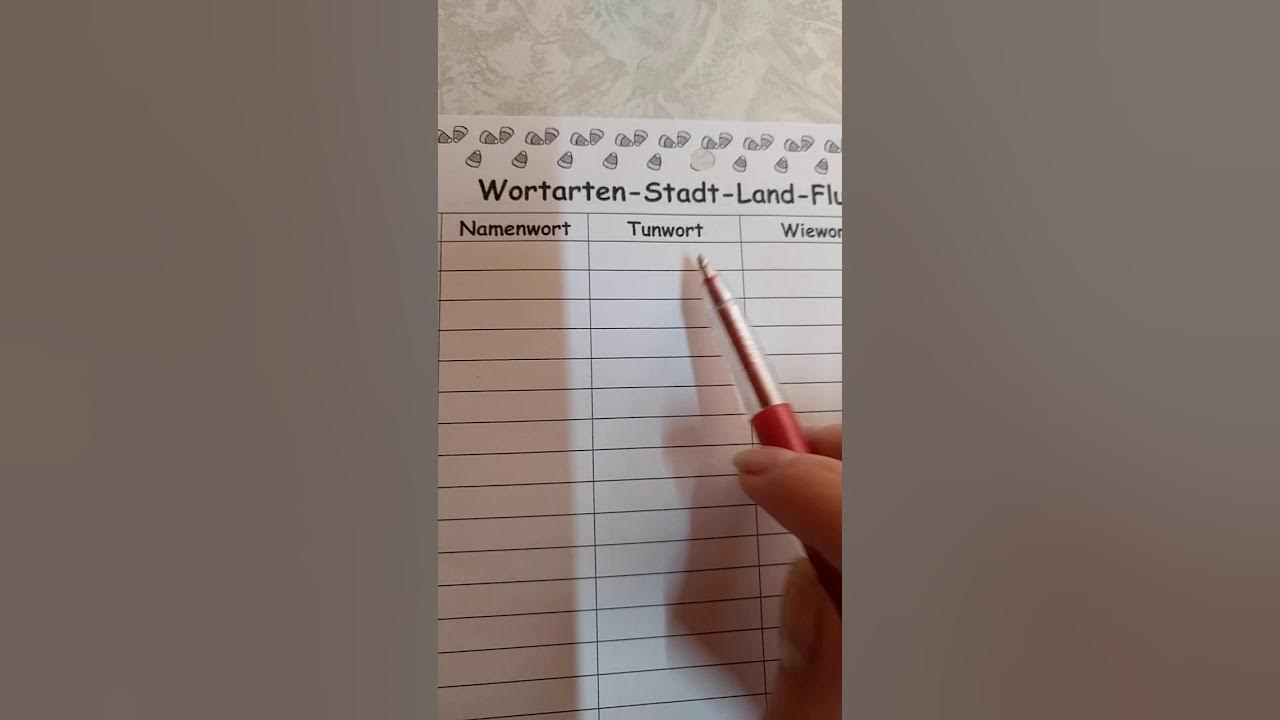 Wortarten-Stadt-Land-Flu
Namenwort Tunwort Wiewor